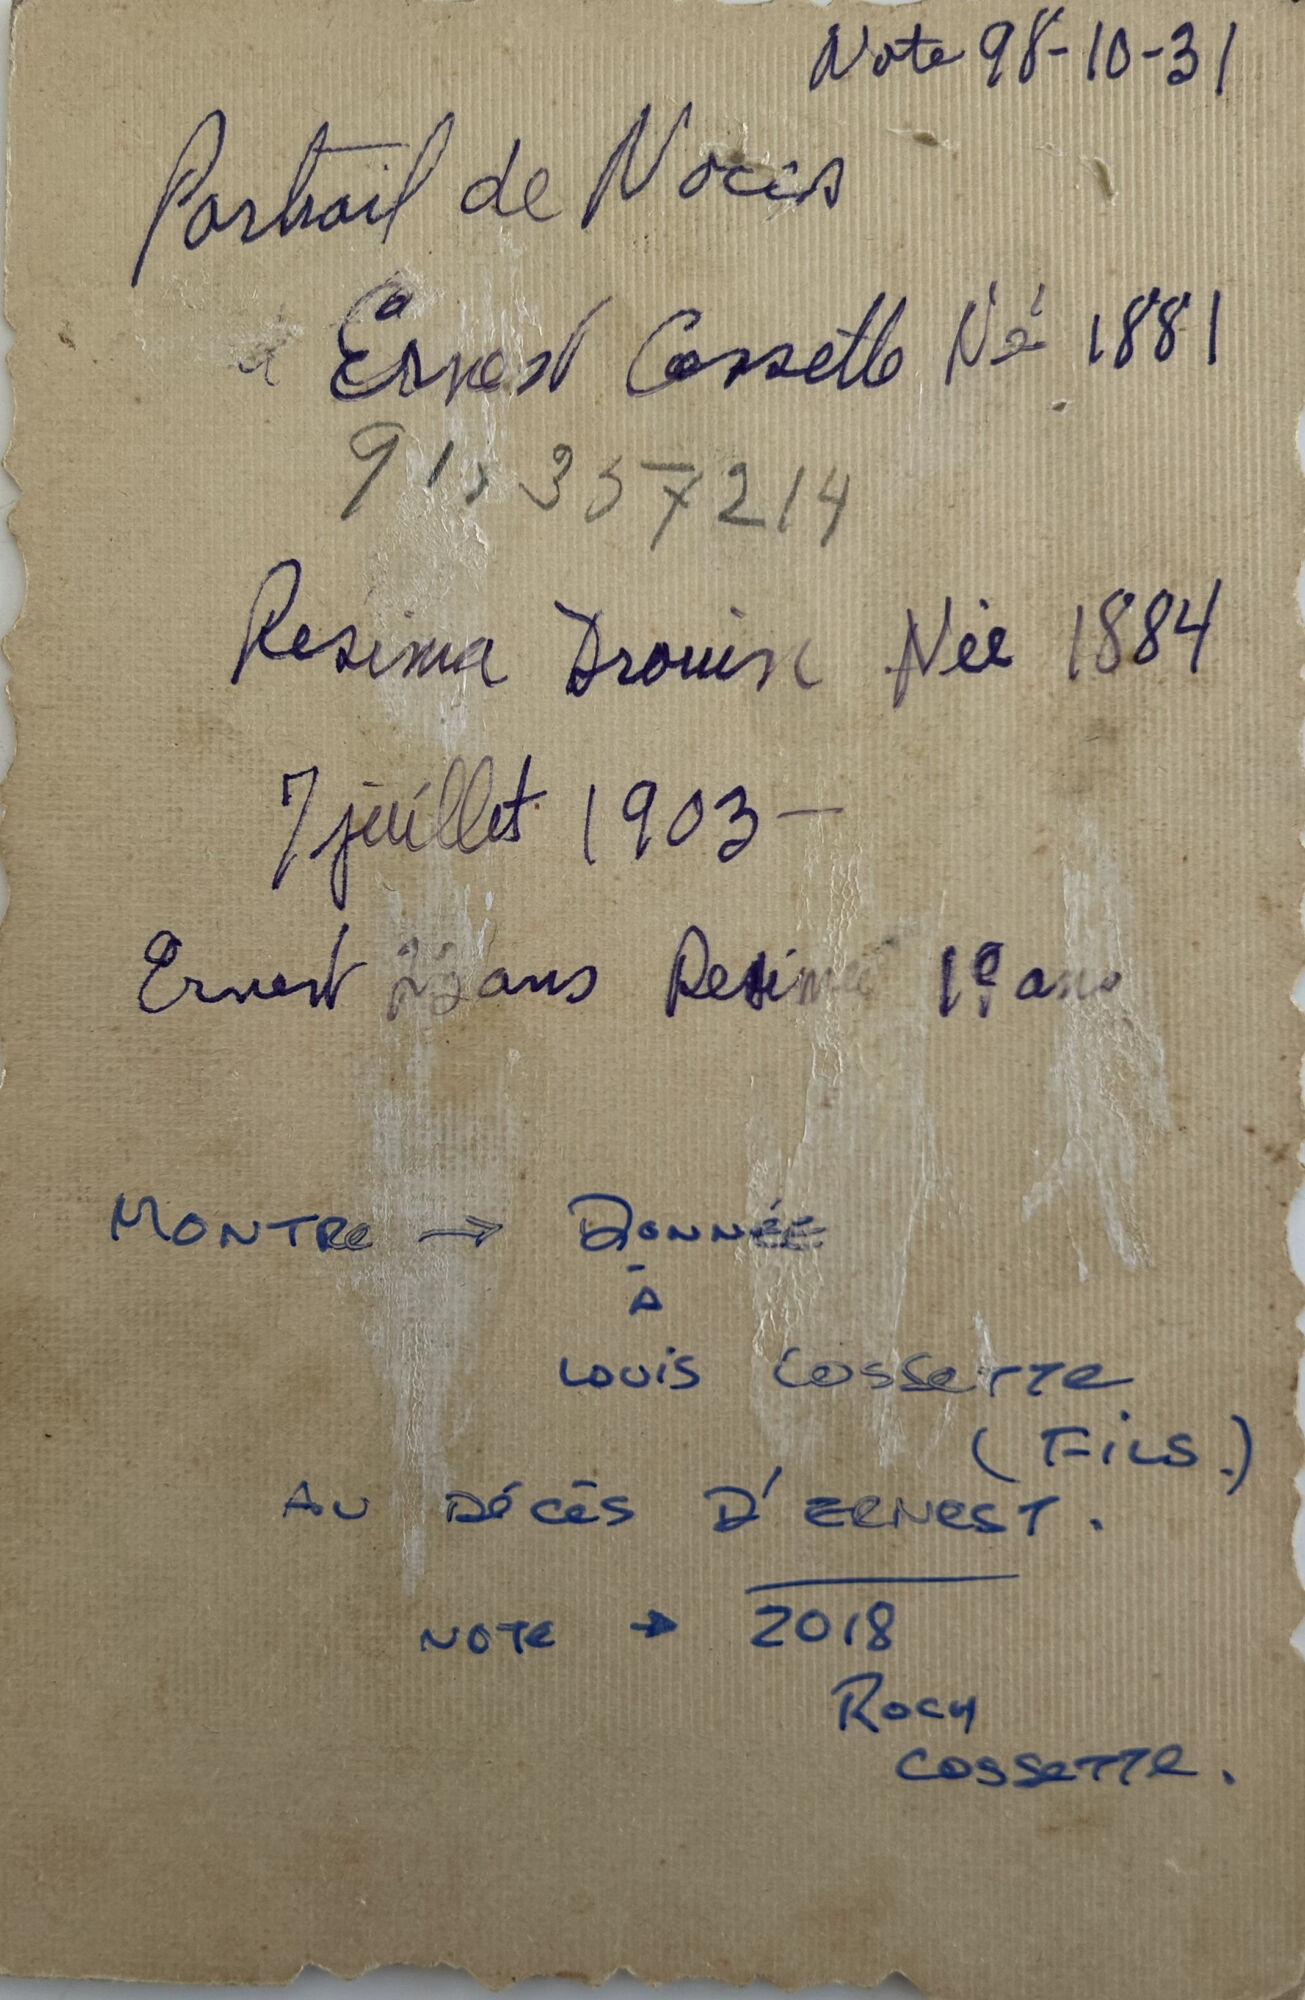 Note 98-10-31
Portrait de Noces
Ernest Cossette Né 1881
357214
Resima Drouin Née 1884
7 juillet 1903 -
Ernest 22 ans Resima 19 ans
MONTRe → DONNÉE
À
LOUIS COSSeTTe
(FiLS.)
AU DÉCÈS D'ERNEST.
NOTe → 2018
ROCH
COSSeTTe.